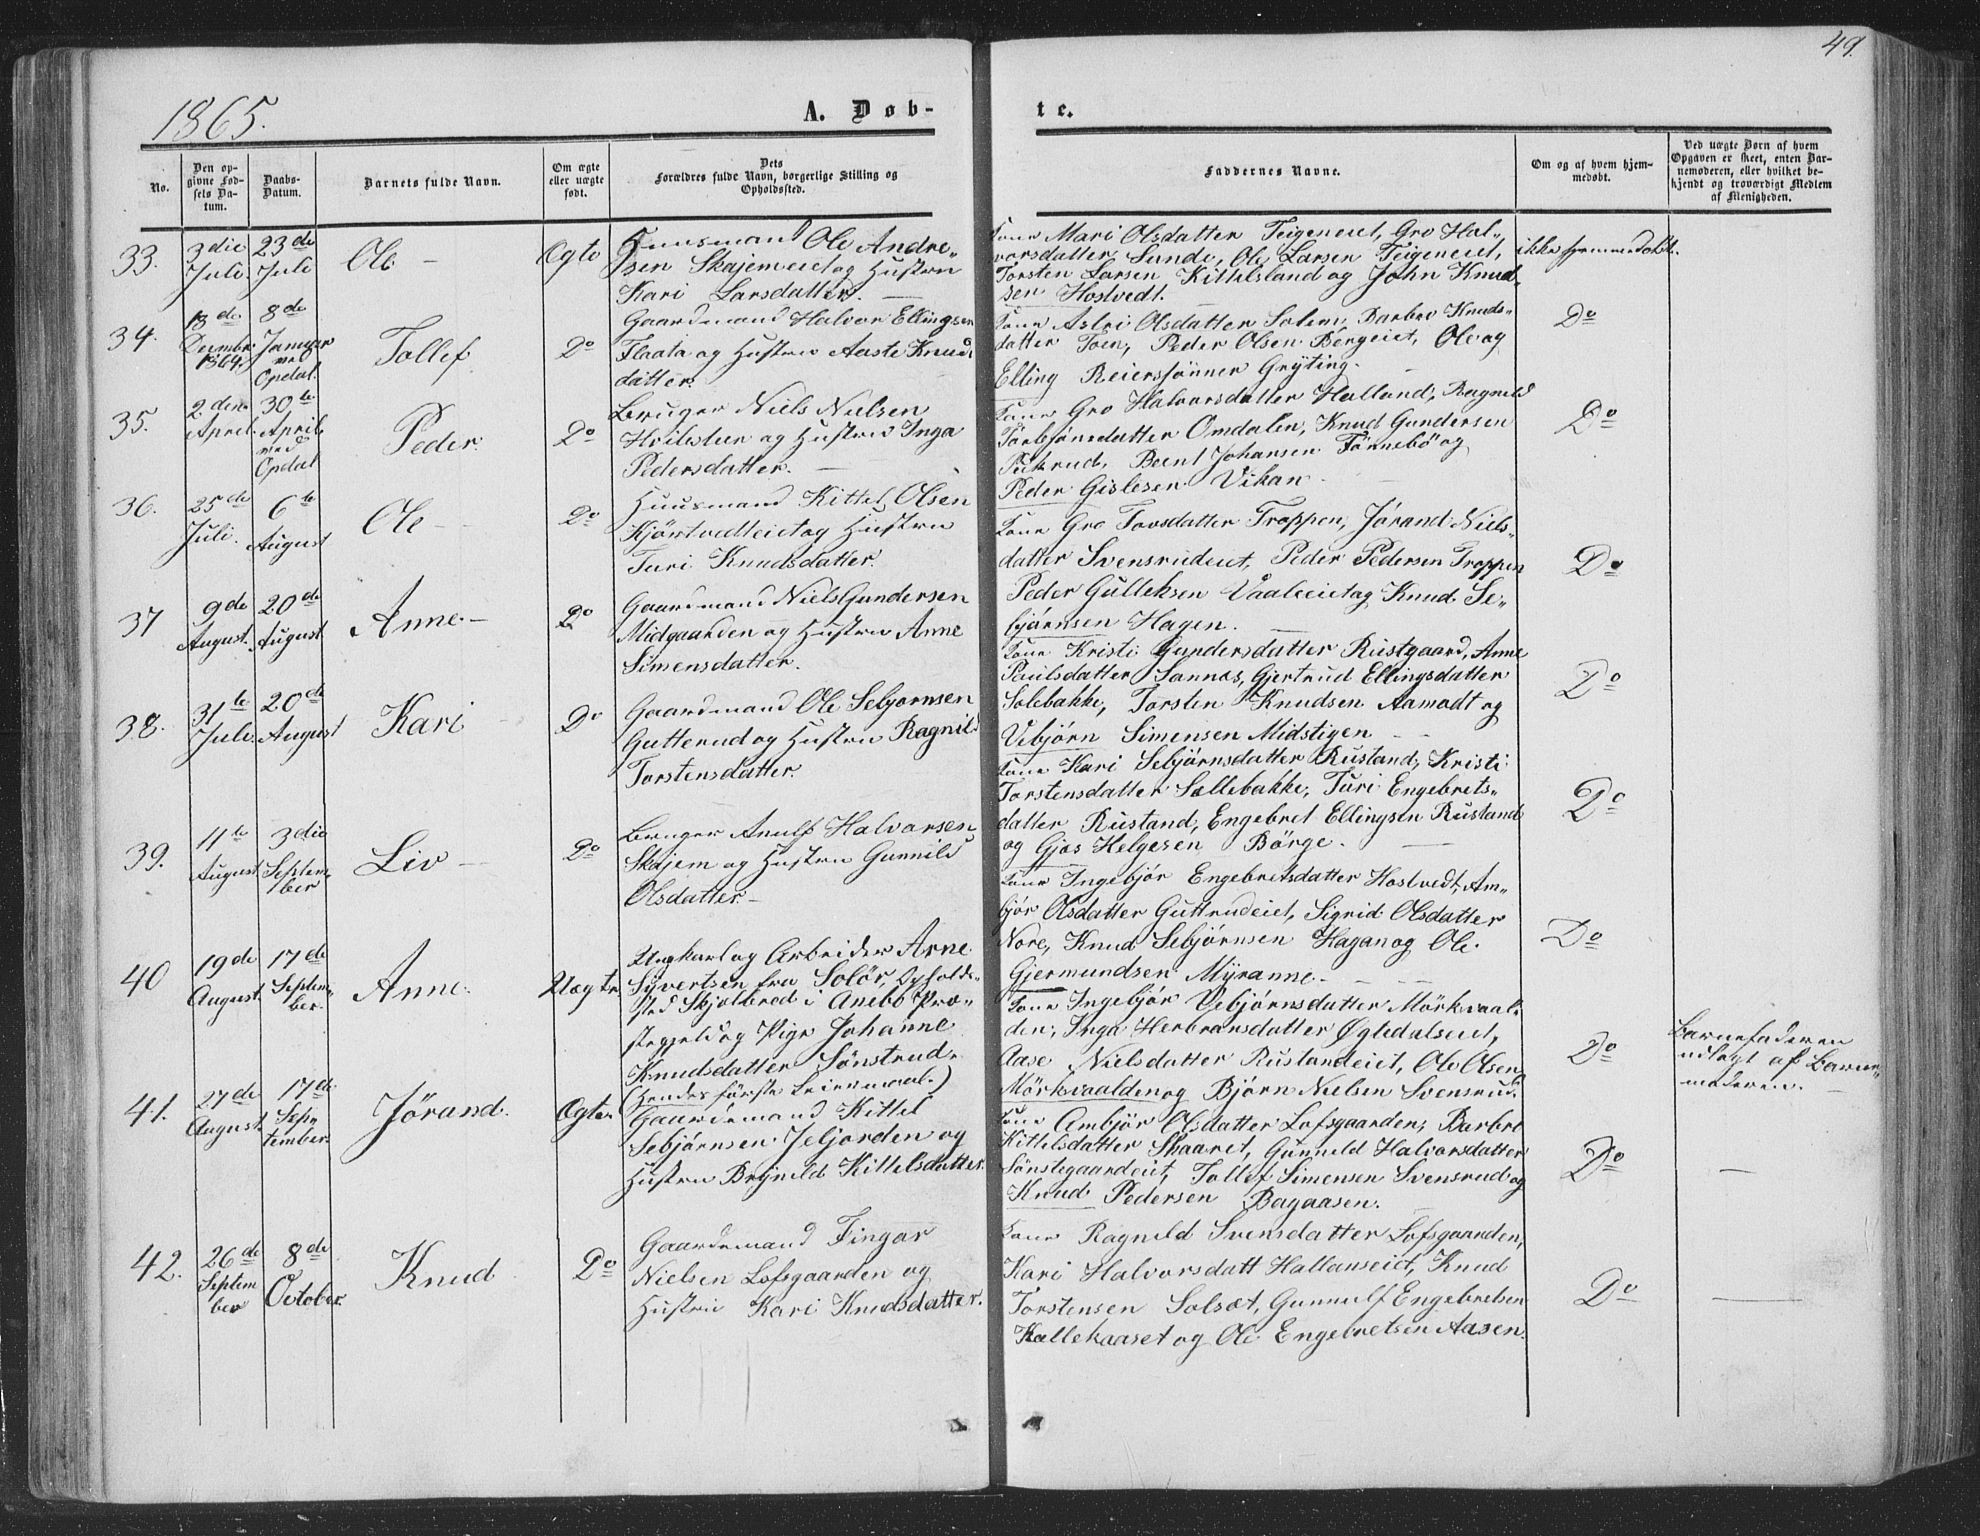 1865.
49.
A. Døb-
te.
No.
Den op-
givne Fød-
sels Da-
tum.
Daabs-
Datum.
Barnets fulde Navn.
Om ægte
eller uægte
født.
Dets
Forældres fulde Navn, borgerlige Stilling og
Opholdssted.
Faddernes Navne.
Om og af hvem hjem-
medøbt.
Ved uægte Børn af hvem
Opgaven er skeet, enten Bar-
nemoderen, eller hvilket be-
kjendt og troværdigt Medlem
af Menigheden.
33.
3die
Juli
23de
Juli
Ole
Ægte
Huusmand Ole Andre-
sen Skajemeiet og Hustru
Kari Larsdatter.
Mari Olsdatter Teigeneiet, Gro Hal-
vorsdatter Sunde, Ole Larsen Teigeneiet,
Torsten Larsen Kittelsland og John Knud-
sen Hostvedt.
ikke hjemmedøbt.
34.
13de
Decembr
1864.
8de
Januar
ved
Opdal.
Tollef
Do
Gaardmand Halvor Ellingsen
Flaata og Hustru Aaste Knuds
datter.
Astri Olsdatter Solem, Barbro Knuds-
datter Toen, Peder Olsen Bergeiet, Ole og
Elling Reierssønner Gryting.
Do
35.
2den
April.
30te
April
ved
Opdal
Peder
Do
Bruger Niels Nielsen
og Hustru Inga
Pedersdatter.
Gro Halvorsdatter Halland, Ragnild
Torbjønsdatter Omdalen, Knud Gundersen
Bernt Johansen Tønnebö og
Peder Gislesen Vikan
Do
36.
25de
Juli.
6te
August
Ole
Do
Huusmand Kittel Olsen
Kjörstvedteiet og Hustru
Turi Knudsdatter.
Gro Tovsdatter Troppen, Jörand Niels-
datter Svensrudeiet, Peder Pedersen Troppen
Peder Gulleksen Vaaleeiet og Knud Se-
björnsen Hagen.
Do
37
9de
August.
20de
August
Anne
Do
Gaardmand Niels Gundersen
Midgaarden og Hustru Anne
Simensdatter.
Kristi Gundersdatter Rustgaard, Anne
Paulsdatter Sannes, Gjertrud Ellingsdatter
Solebakke, Torsten Knudsen Aamodt og
Vebjörn Simensen Midstigen
Do
38.
31te
Juli.
20de
August
Kari
Do
Gaardmand Ole Sebjornsen
Gutterud og Hustru Ragnild
Torstensdatter.
Kari Sebjörnsdatter Rustand, Kristi
Torstensdatter Sollebakke, Turi Engebrets-
datter Rustand, Engebret Ellingsen Rustand
og Gjos Helgesen Börge.
Do
39.
11te
August
3die
Septem-
ber
Liv
Do
Bruger Anulf Halvorsen
Skajem og Hustru Gunnild
Olsdatter.
Ingebjör Engebretsdatter Hostvedt, Am-
björ Olsdatter Guttrudeiet, Sigrid Olsdatter
Nore, Knud Sebjörnsen Hagan og Ole
Gjermundsen Myranne.
Do
40
19de
August
17de
Septem-
ber.
Anne.
Uægte.
Ungkarl og Arbeider Arne
Syvertsen fra Solör, Opholds-
sted Skjølbred i Anebo Præ-
stegjeld og Pige Johanne
Knudsdatter Sönstrud.
(Hendes förste Leiermaal.)
Ingebjör Vebjörnsdatter Mörkvaal-
den, Inga Herbransdatter Øgledalseiet,
Aase Nielsdatter Rustandeiet, Ole Olsen
Mörkvaalden og Björn Nielsen Svensrud.
Do
Barnefaderen
udlagt af Barne-
moderen.
41.
27de
August
17de
Sep-
tember.
Jörand.
Ægte
Gaardmand Kittel
Sebjörnsen Jeljorden og
Hustru Brynild Kittelsdatter.
Ambjör Olsdatter Lofsgaarden, Barbro
Kittelsdatter Skaaret, Gunnild Halvorsdatter
Sönstegaardeiet, Tollef Simensen Svensrud og
Knud Pedersen Bagaasen.
Do
42.
26de
Septem
ber
8de
October.
Knud
Do
Gaardmand Fingar
Nielsen Lofsgaarden og
Hustru Kari Knudsdatter.
Ragnild Svensdatter Lofsgaarden,
Kari Halvorsdatt Hallanseiet, Knud
Torstensen Solsæt, Gunnulf Engebretsen
Kallekaaset og Ole Engebretsen Aasen.
Do